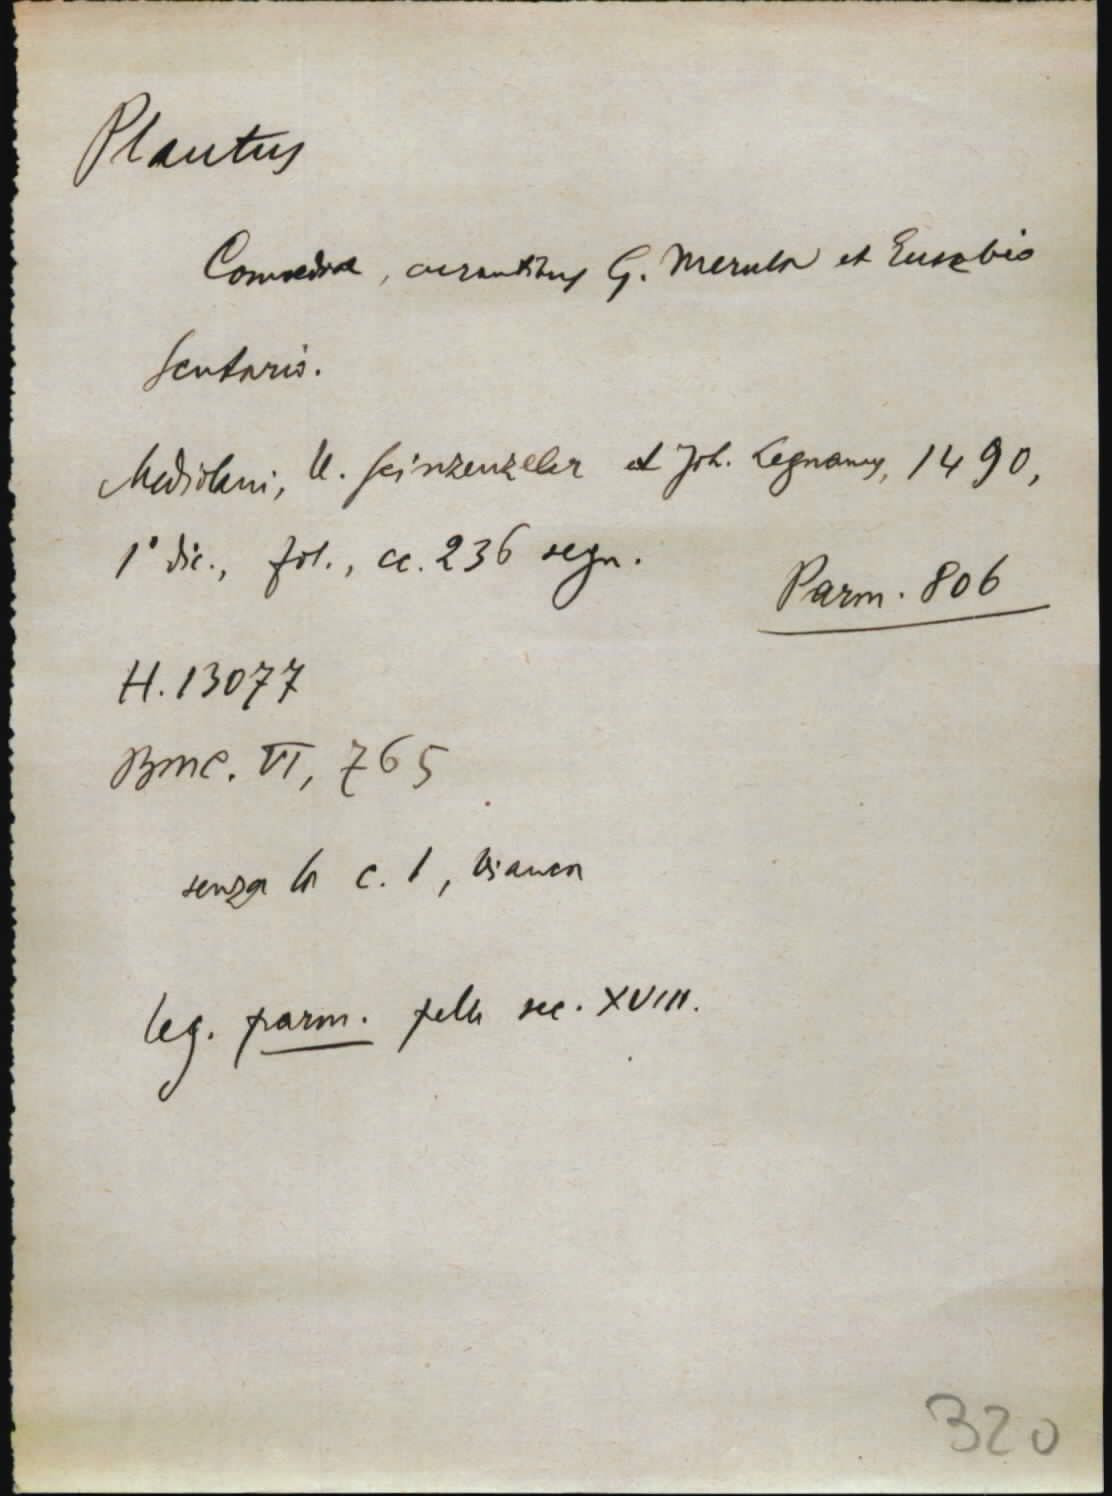 Plautus
Comoediae, curantibus G. Merula et Eusebio
Scutario.
Mediolani, U. Scinzenzeler et Joh. Legnanus, 1490,
1° dic., fol., cc. 236 segn.
Parm. 806
H. 13077
BMC. VI, 765
senza la c. 1, bianca
leg. parm. pelle sec. XVIII.
320